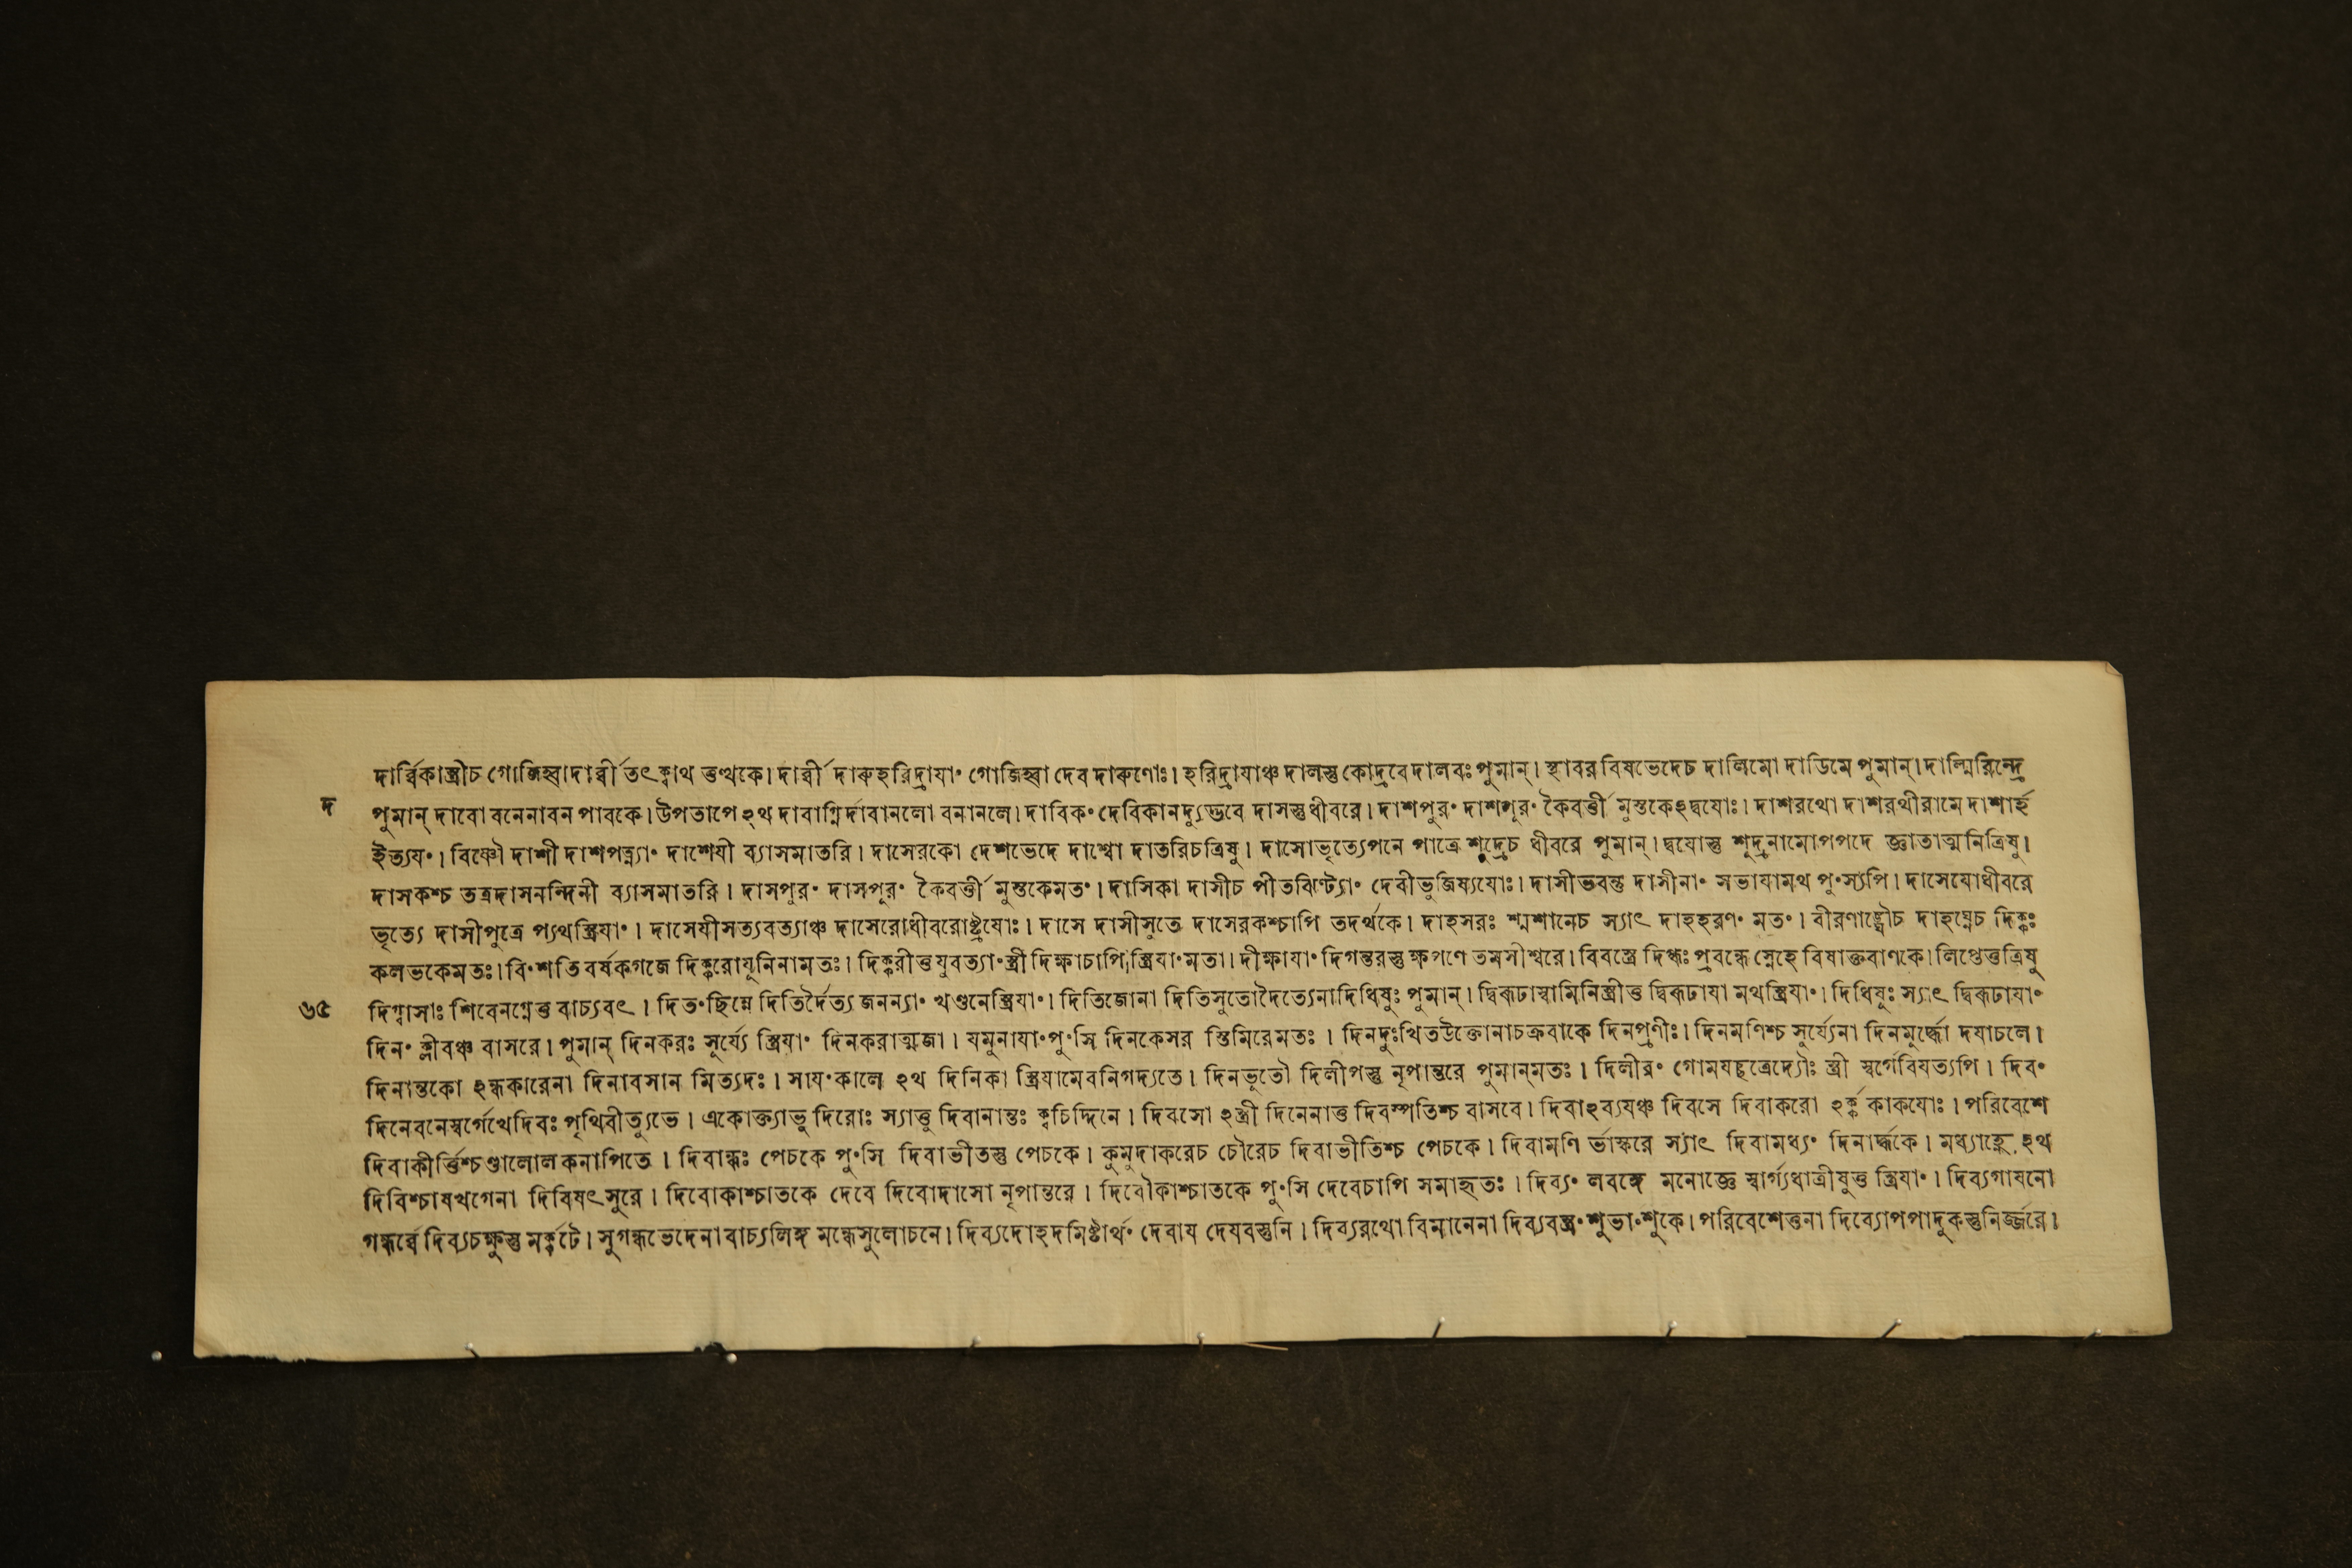 দার্ব্বিকাস্ত্রীচ গোজিহ্বাদার্ব্বী তৎ ক্বাথ তুত্থকে। দার্ব্বী দারুহরিদ্রাযা॰ গোজিহ্বা দেব দারুণোঃ। হরিদ্রাযাঞ্চ দালস্তু কোদ্রবে দালবঃ পুমান্। স্থাবর বিষভেদেচ দালিমো দাডিমে পুমান্। দাল্মিরিন্দ্রে
দ
পুমান্ দাবো বনেনাবন পাবকে। উপতাপে ঽথ দাবাগ্নির্দাবানলো বনানলে। দাবিক॰ দেবিকানদ্যুদ্ভবে দাসস্তুধীবরে। দাশপুর॰ দাশপূর॰ কৈবর্ত্তী মুস্তকেঽদ্বযোঃ। দাশরথো দাশরথীরামে দাশার্হ
ইত্যয॰। বিষ্ণৌ দাশী দাশপত্ন্যা॰ দাশেযী ব্যাসমাতরি। দাসেরকো দেশভেদে দাশ্বো দাতরিচত্রিষু। দাসোভৃত্যেপনে পাত্রে শূদ্রেচ ধীবরে পুমান্। দ্বযোস্তু শূদ্রনামোপপদে জ্ঞাতাত্মনিত্রিষু।
দাসকশ্চ তত্রদাসনন্দিনী ব্যাসমাতরি। দাসপুর॰ দাসপূর॰ কৈবর্ত্তী মুস্তকেমত॰। দাসিকা দাসীচ পীতঝিণ্ট্যো॰ দেবীভুজিষ্যযোঃ। দাসীভবন্তু দাসীনা॰ সভাযামথ পু॰স্যপি। দাসেযোধীবরে
ভৃত্যে দাসীপুত্রে প্যথস্ত্রিযা॰। দাসেযীসত্যবত্যাঞ্চ দাসেরোধীবরোষ্ট্রযোঃ। দাসে দাসীসুতে দাসেরকশ্চাপি তদর্থকে। দাহসরঃ শ্মশানেচ স্যাৎ দাহহরণ॰ মত॰। বীরণাঙ্ঘ্রৌচ দাহঘ্নেচ দিক্কঃ
কলভকেমতঃ। বি॰শতি বর্ষকগজে দিক্করোযূনিনামতঃ। দিক্করীত্তযুবত্যা॰স্ত্রী দিক্ষাচাপি স্ত্রিযা॰মতা। দীক্ষাযা॰ দিগন্তরস্তু ক্ষপণে তমসীশ্বরে। বিবস্ত্রে দিগ্ধঃ প্রবন্ধে স্নেহে বিষাক্তবাণকে। লিপ্তেত্তত্রিষু
৬৫ দিগ্বাসাঃ শিবেনগ্নেত্ত বাচ্যবৎ। দিত॰ছিন্নে দিতির্দৈত্য জনন্যা॰ খণ্ডনেস্ত্রিযা॰। দিতিজোনা দিতিসুতোদৈত্যেনাদিধিষুঃ পুমান্। দ্বিরূঢাস্বামিনিস্ত্রীত্ত দ্বিরূঢাযা মথস্ত্রিযা॰। দিধিষূঃ স্যাৎ দ্বিরূঢাযা॰
দিন॰ ক্লীবঞ্চ বাসরে। পুমান্ দিনকরঃ সূর্য্যে স্ত্রিযা॰ দিনকরাত্মজা। যমুনাযা॰পু॰সি দিনকেসর স্তিমিরেমতঃ। দিনদুঃখিতউক্তোনাচক্রবাকে দিনপ্রণীঃ। দিনমণিশ্চ সূর্য্যেনা দিনমূর্দ্ধো দযাচলে।
দিনান্তকো ঽন্ধকারেনা দিনাবসান মিত্যদঃ। সায॰কালে ঽথ দিনিকা স্ত্রিযামেবনিগদ্যতে। দিনভৃতৌ দিলীপস্তু নৃপান্তরে পুমান্‌মতঃ। দিলীর॰ গোমযছত্রেদ্যৌঃ স্ত্রী স্বর্গেবিযত্যপি। দিব॰
দিনেবনেস্বর্গেখেদিবঃ পৃথিবীত্যুভে। একোক্ত্যাভূ দিরোঃ স্যাত্তু দিবানান্তঃ ক্বচিদ্দিনে। দিবসো ঽস্ত্রী দিনেনাত্ত দিবস্পতিশ্চ বাসবে। দিবাঽব্যযঞ্চ দিবসে দিবাকরো ঽর্ক্ক কাকযোঃ। পরিবেশে
দিবাকীর্ত্তিশ্চণ্ডালোল কনাপিতে। দিবান্ধঃ পেচকে পু॰সি দিবাভীতস্তু পেচকে। কুমুদাকরেচ চৌরেচ দিবাভীতিশ্চ পেচকে। দিবামণি র্ভাস্করে স্যাৎ দিবামধ্য॰ দিনার্দ্ধকে। মধ্যাহ্নে ঽথ
দিবিশ্চাষখগেনা দিবিষৎসুরে। দিবোকাশ্চাতকে দেবে দিবোদাসো নৃপান্তরে। দিবৌকাশ্চাতকে পু॰সি দেবেচাপি সমাহৃতঃ। দিব্য॰ লবঙ্গে মনোজ্ঞে স্বার্গ্যধাত্রীষুত্ত স্ত্রিযা॰। দিব্যগাযনো
গন্ধর্ব্বে দিব্যচক্ষুস্তু মর্ক্কটে। সুগন্ধভেদেনাবাচ্যলিঙ্গ মন্ধেসুলোচনে। দিব্যদোহদমিষ্টার্থ॰ দেবায দেযবস্তুনি। দিব্যরথো বিমানেনা দিব্যবস্ত্র॰শুভা॰শুকে। পরিবেশেত্তনা দিব্যোপপাদুকস্তুনির্জ্জরে।